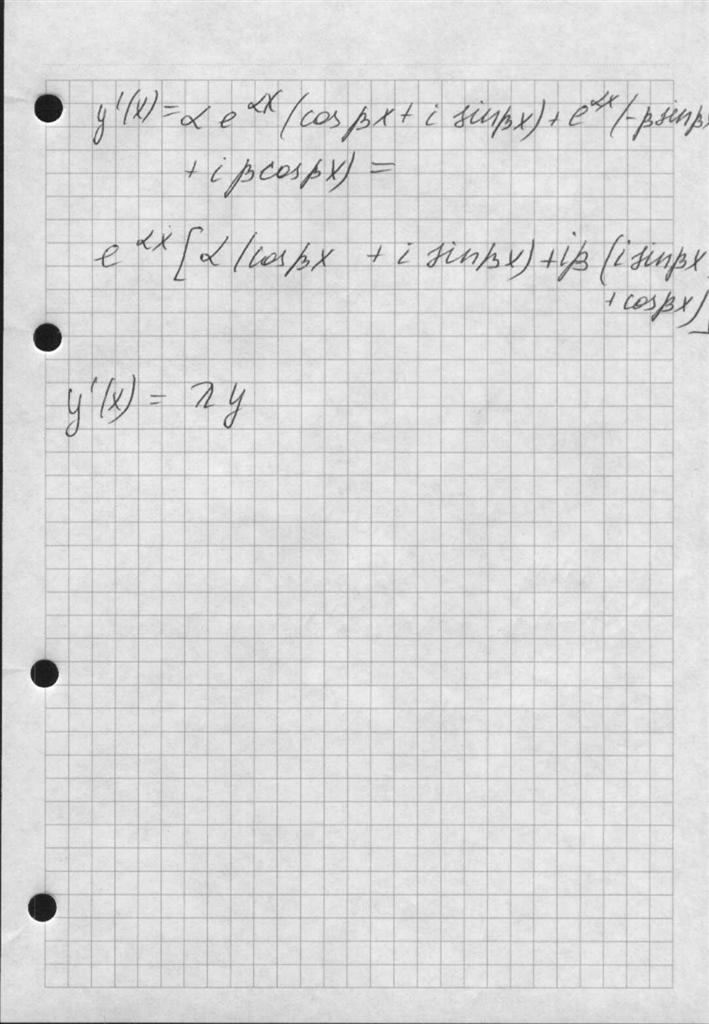 y'(x) = α e^{αx} (cos βx + i sin βx) + e^{αx} (-β sin βx
+ i β cos βx) =
e^{αx} [α (cos βx + i sin βx) + iβ (i sin βx
+ cos βx)]
y'(x) = λ y